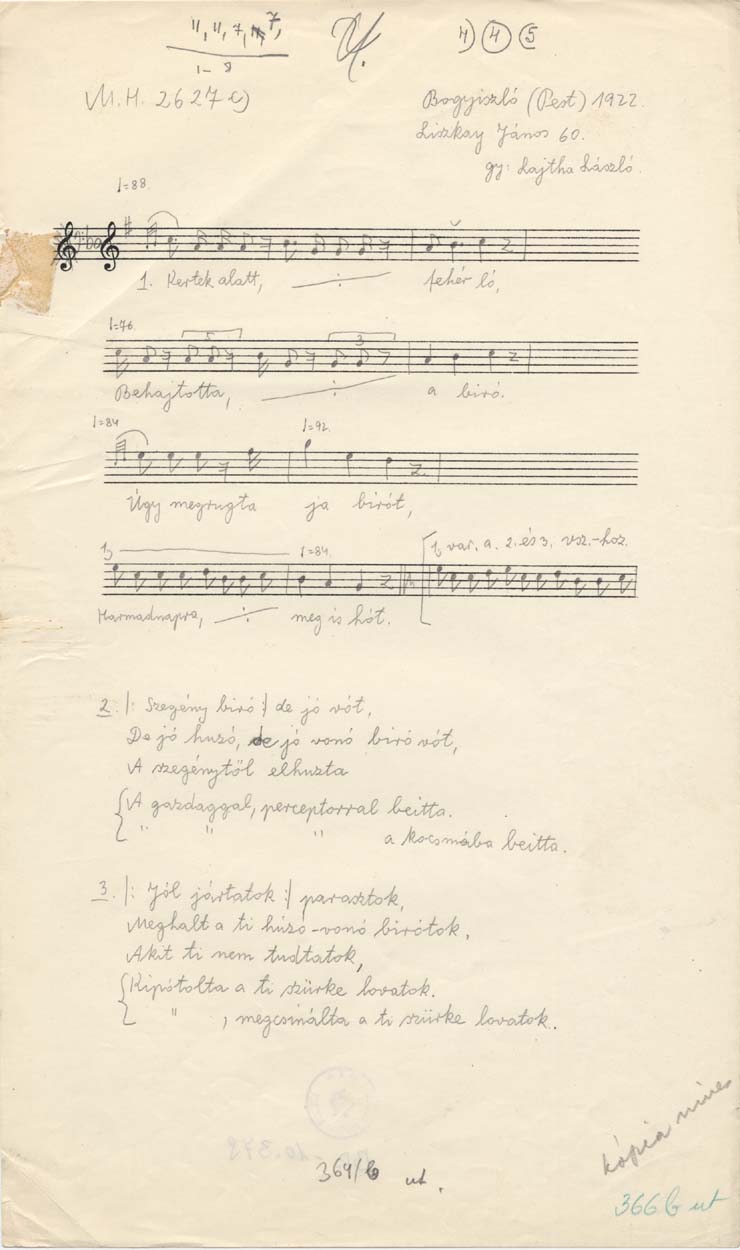 11, 11, 7, 7,
1–8
4) 4 5
M.H. 2627 c)
Bogyiszló (Pest) 1922.
Liszkay János 60.
gy: Lajtha László.
♩=88.
1. Kertek alatt, ÷ fehér ló,
♩=76.
5 3
Behajtotta, ÷ a biró.
♩=84 ♩=92.
Úgy megrugta ja birót,
♩=84. var. a 2. és 3. vsz.-hoz.
Harmadnapra, ÷ meg is hót.
2. |: Szegény biró :| de jó vót,
De jó huzó, de jó vonó biró vót,
A szegénytől elhuzta
A gazdaggal, perceptorral beitta.
" " " a kocsmába beitta.
3. |: Jól jártatok :| parasztok,
Meghalt a ti húzó-vonó birótok,
Akit ti nem tudtatok,
Kipótolta a ti szürke lovatok.
" , megcsinálta a ti szürke lovatok.
364/b ut.
kópia nincs
366 b ut